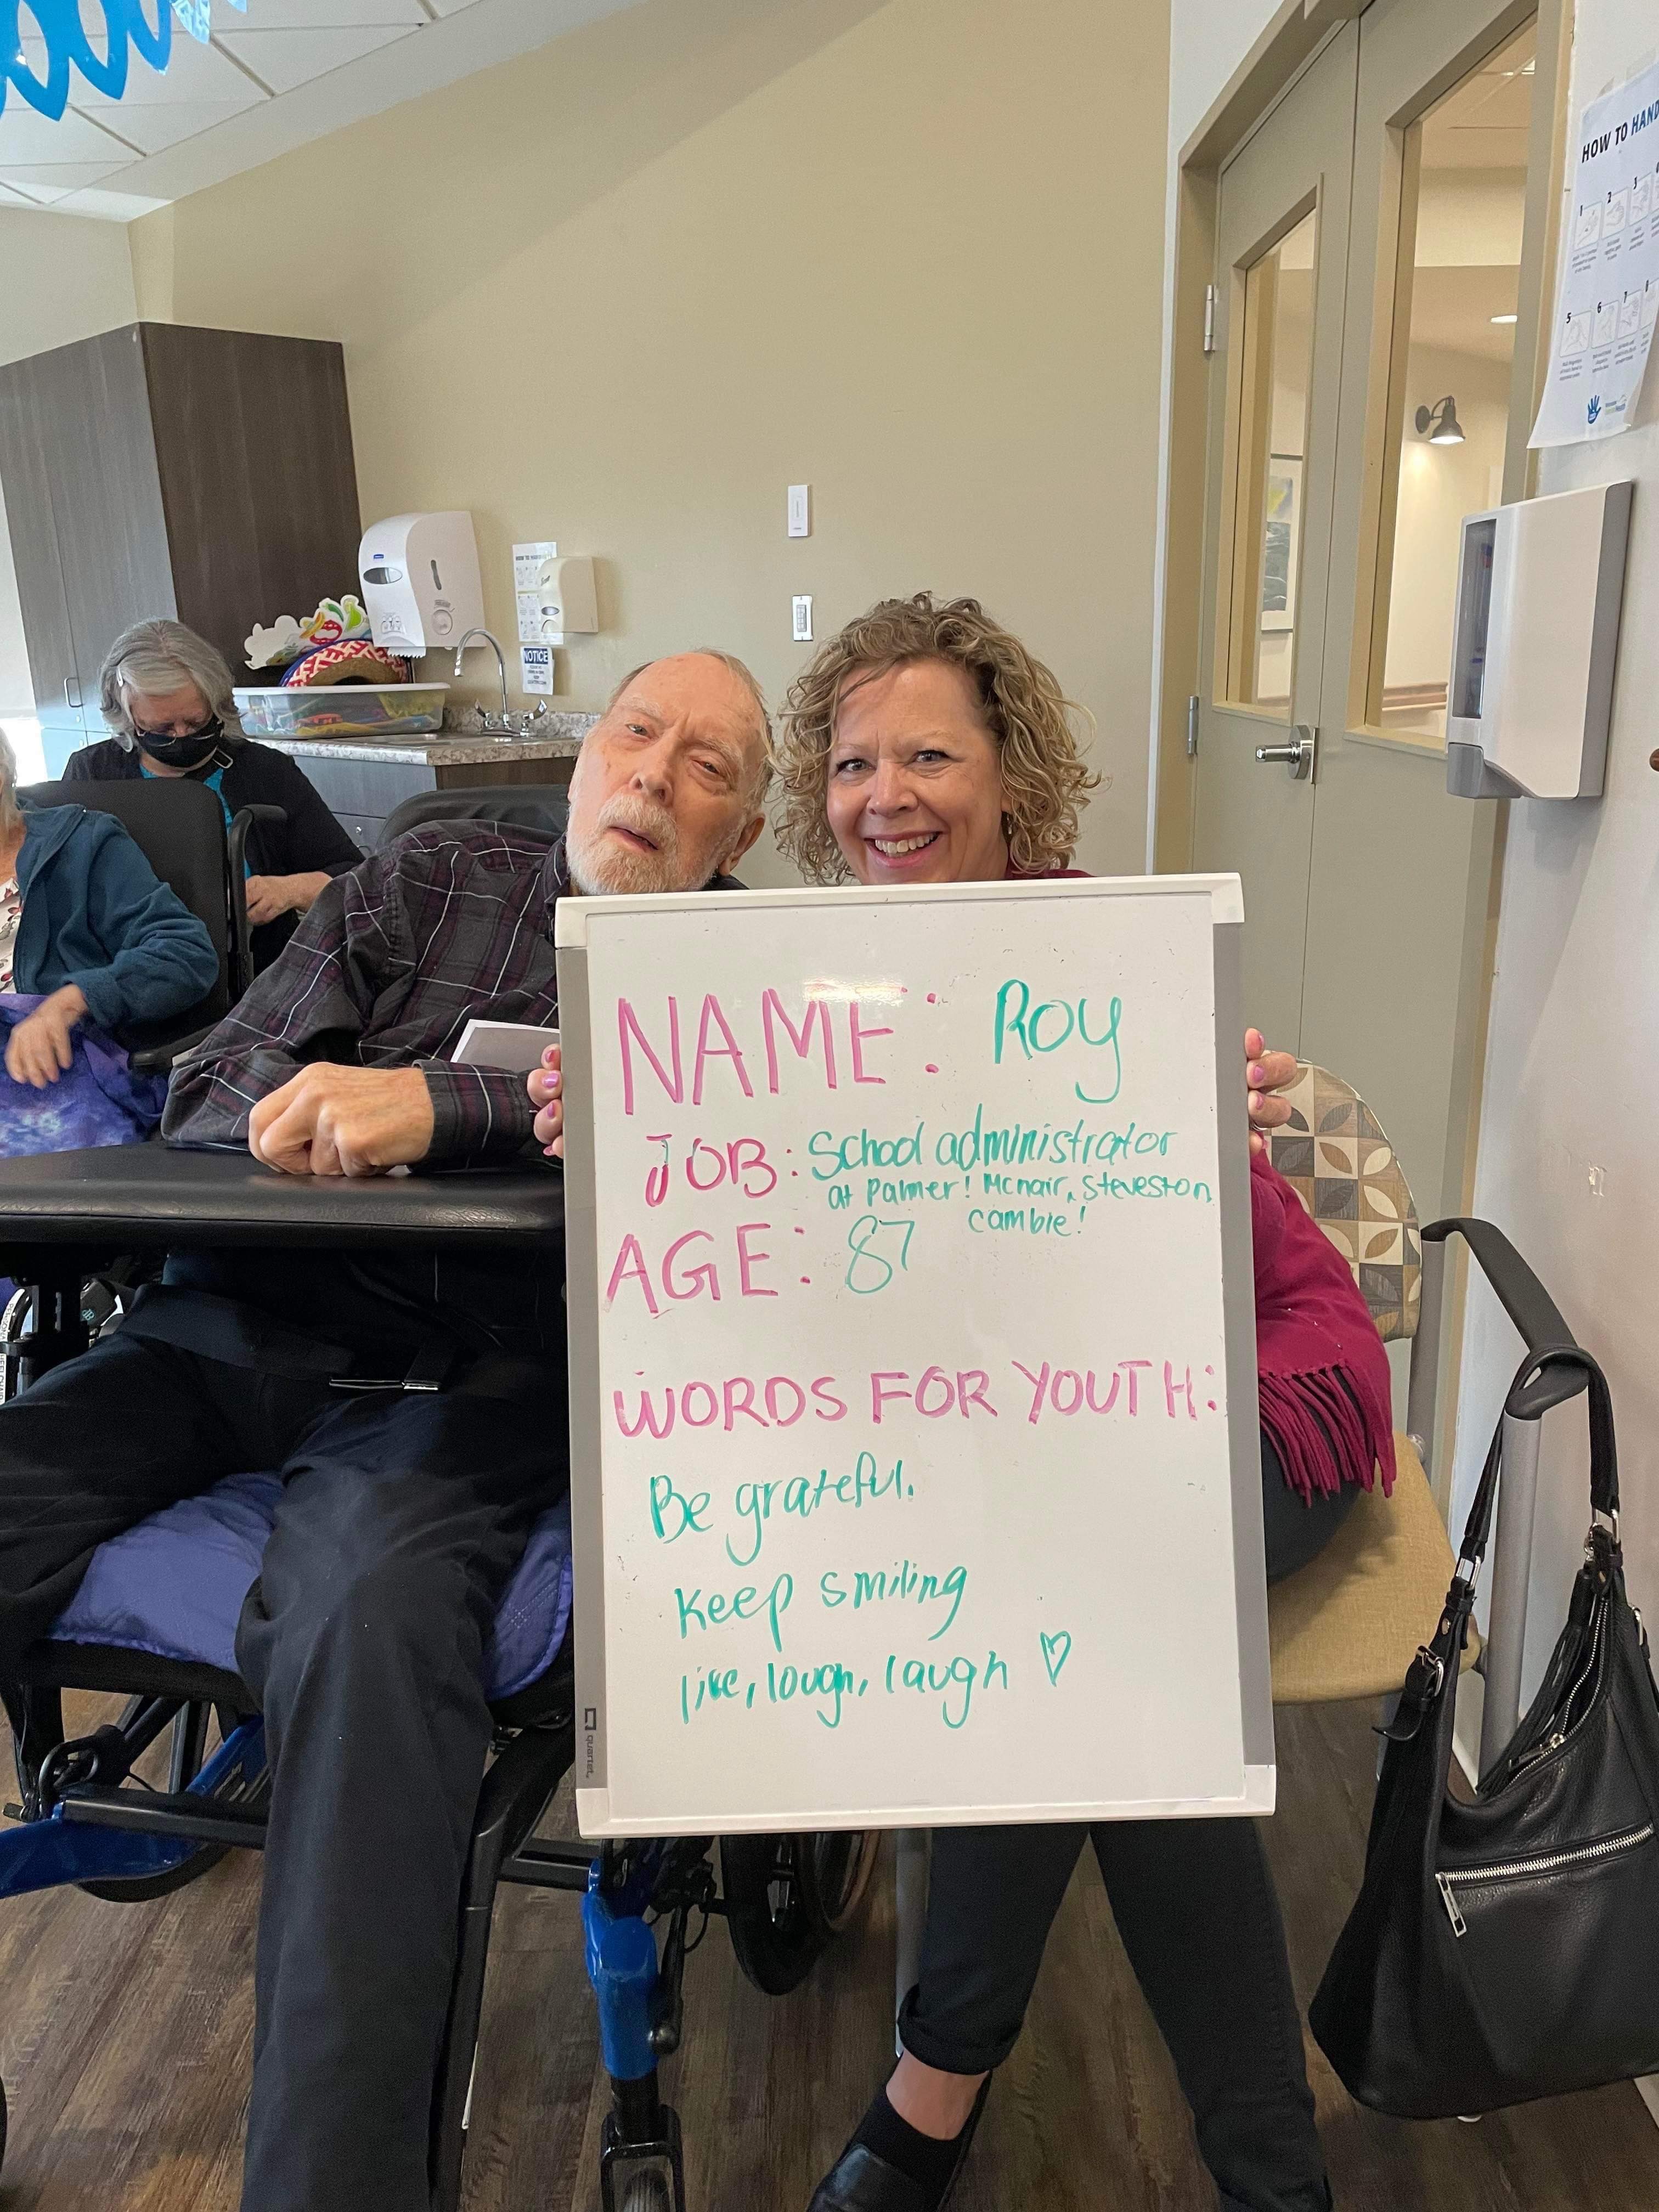 HOW TO HAND
1 2 3
5 6 7 8
NOTICE
NAME: Roy
JOB: School administrator
at Palmer! Mcnair, Steveston,
cambie!
AGE: 87
WORDS FOR YOUTH:
Be grateful.
Keep smiling
live, lough, laugh ♡
quartet